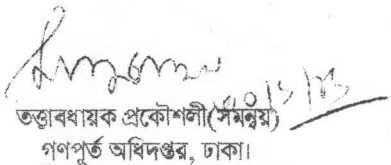 তত্ত্বাবধায়ক প্রকৌশলী(সমন্বয়)
গণপূর্ত অধিদপ্তর, ঢাকা।